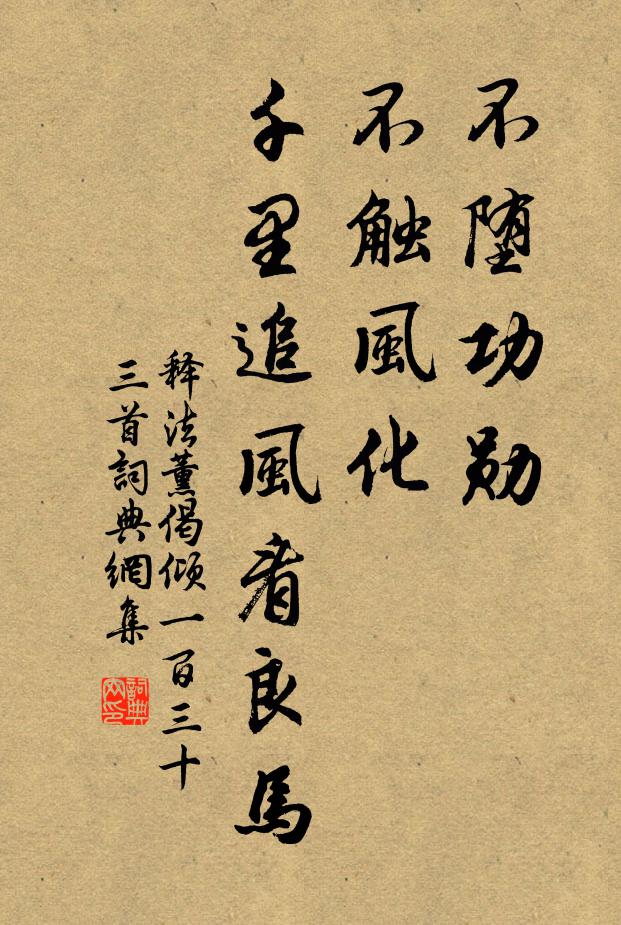 不堕功勋
不触風化
千里追風看良馬
释法薰偈倾一百三十
三首詞典網集
詞典網印